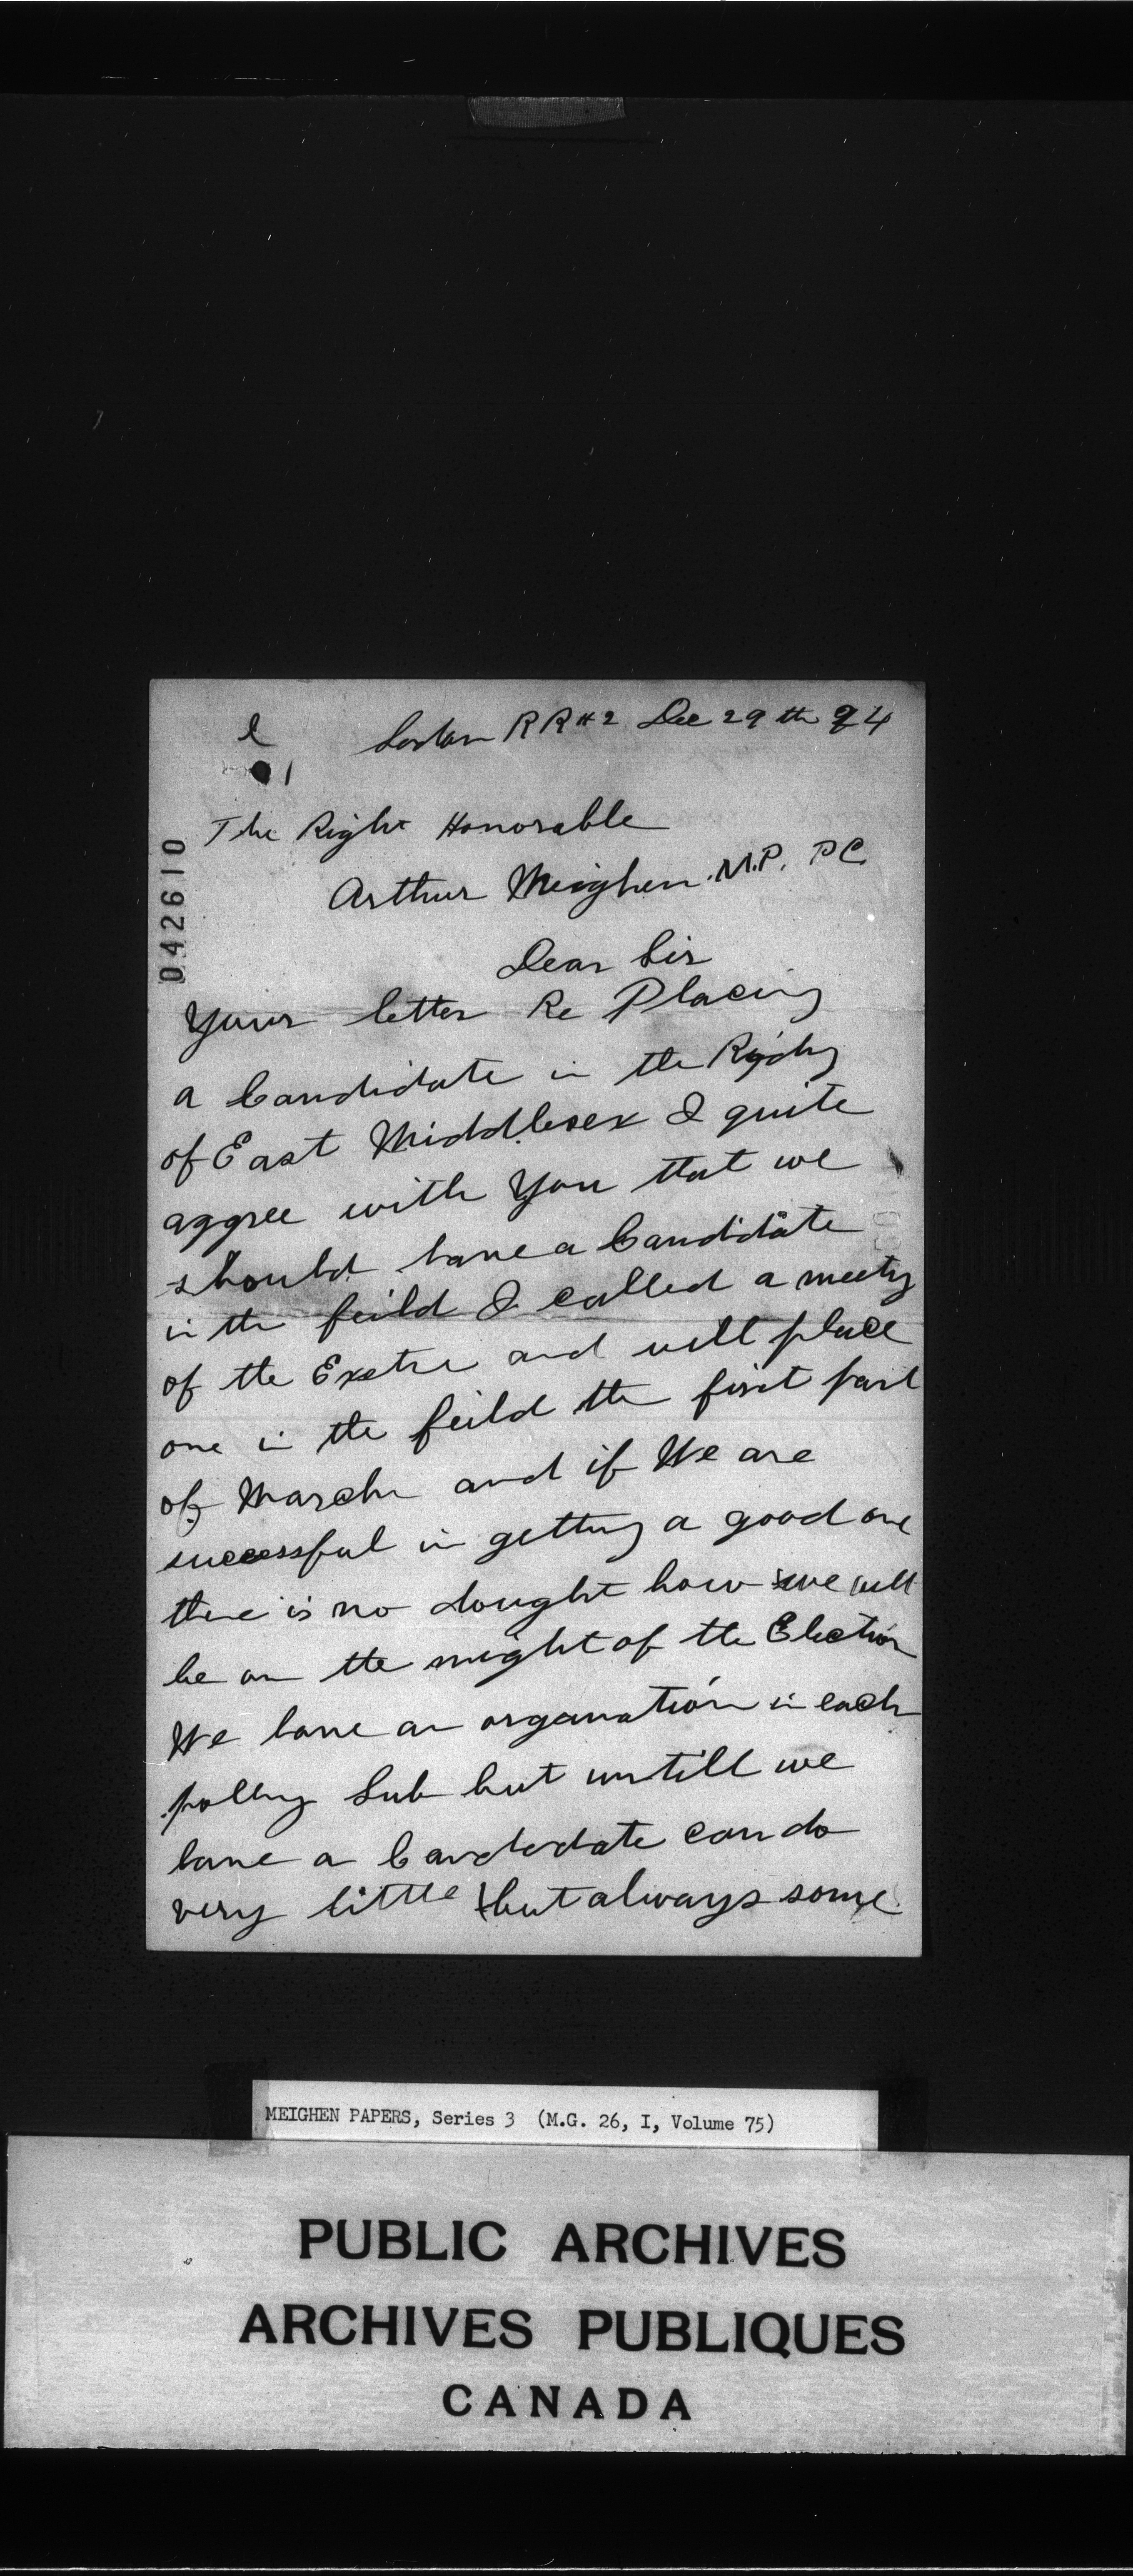 London RR #2 Dec 29 th 24
1
The Right Honorable
Arthur Meighen. M.P. P C
042610
Dear Sir
Your letter Re Placing
a Candidate in the Riding
of East Middlesex I quite
aggree with You that we
should have a Candidate
in the feild I called a meeting
of the Exetre and will place
one in the feild the first part
of March and if We are
successful in getting a good one
there is no dought how we will
be on the night of the Election
We have an organation in each
polling Sub but untill we
have a Candidate can do
very little but always some
MEIGHEN PAPERS, Series 3 (M.G. 26, I, Volume 75)
PUBLIC ARCHIVES
ARCHIVES PUBLIQUES
CANADA